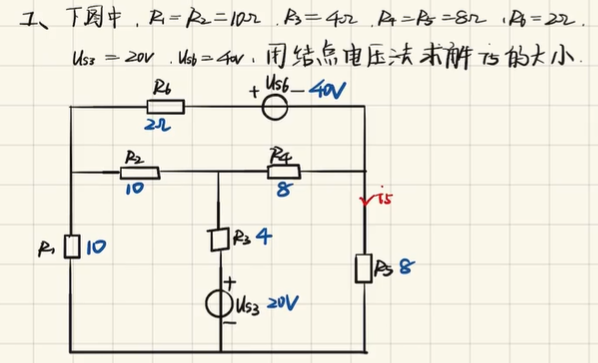 1、下图中，R₁=R₂=10Ω，R₃=4Ω，R₄=R₅=8Ω，R₆=2Ω.
Us₃=20V，Us₆=40V，用结点电压法求解i₅的大小.
R₆
+ Us₆ - 40V
2Ω
R₂
R₄
10
8
i₅
R₁ 10
R₃ 4
R₅ 8
+
Us₃ 20V
-